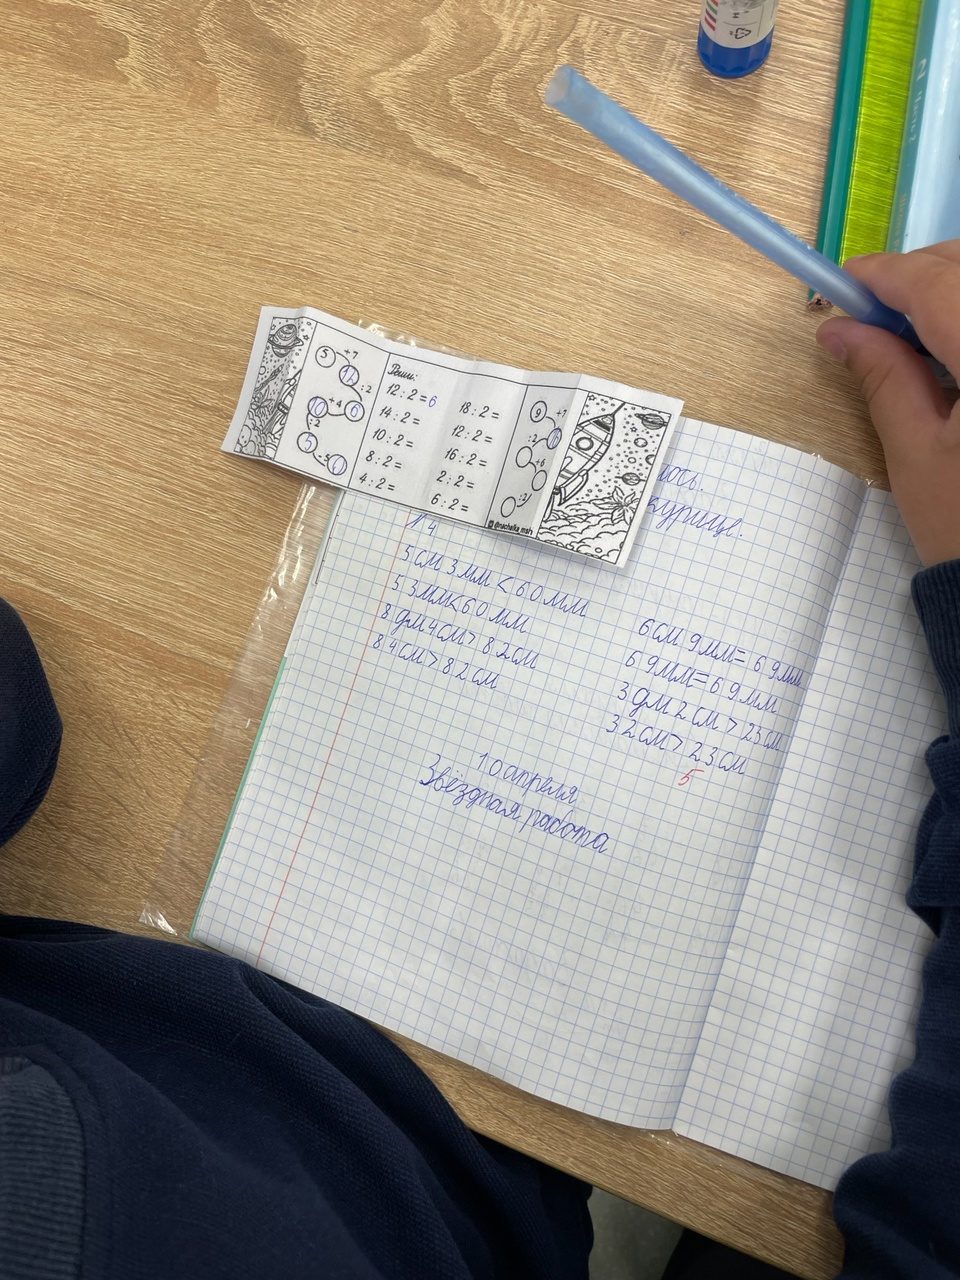 5 +7
12 :2
10 +4 6
:2
5
-5
Реши:
12 : 2 = 6
14 : 2 =
10 : 2 =
8 : 2 =
4 : 2 =
18 : 2 =
12 : 2 =
16 : 2 =
2 : 2 =
6 : 2 =
9 +7
:2
+6
:2
@nachalka_msh
курице.
5 см 3 мм < 60 мм
53 мм < 60 мм
8 дм 4 см > 82 см
84 см > 82 см
6 см 9 мм = 69 мм
69 мм = 69 мм
3 дм 2 см > 23 см
32 см > 23 см
5
10 апреля
Звёздная работа